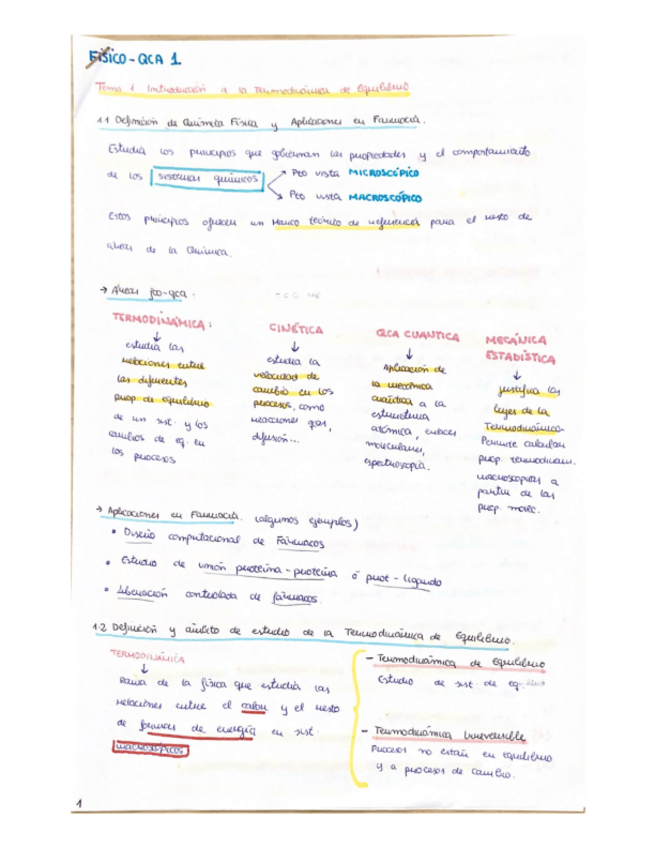 FÍSICO - QCA 1
Tema 1 Introducción a la Termodinámica de Equilibrio
1.1 Definición de Química Física y Aplicaciones en Farmacia.
Estudia los principios que gobiernan las propiedades y el comportamiento
de los sistemas químicos
Pto vista MICROSCÓPICO
Pto vista MACROSCÓPICO
Estos principios ofrecen un Marco teórico de referencia para el resto de
áreas de la Química.
→ Áreas fco-qca.
TERMODINÁMICA:
estudia las
relaciones entre
las diferentes
prop. de equilibrio
de un sist. y los
cambios de eq. en
los procesos
CINÉTICA
estudia la
velocidad de
cambio en los
procesos, como
reacciones qcas,
difusión...
QCA CUANTICA
aplicación de
la mecánica
cuántica a la
estructura
atómica, enlaces
moleculares,
espectroscopía.
MECÁNICA
ESTADÍSTICA
justifica las
leyes de la
Termodinámica.
Permite calcular
prop. termodinám.
macroscópicas a
partir de las
prop. molec.
→ Aplicaciones en Farmacia. (algunos ejemplos)
• Diseño computacional de Fármacos
• Estudio de unión proteína-proteína ó prot-ligando
• Liberación controlada de fármacos
1.2 Definición y ámbito de estudio de la Termodinámica de Equilibrio.
TERMODINÁMICA
Rama de la física que estudia las
relaciones entre el calor y el resto
de formas de energía en sist.
macroscópicos
- Termodinámica de equilibrio
Estudio de sist. de eq.
- Termodinámica Irreversible
Procesos no están en equilibrio
y a procesos de cambio.
1